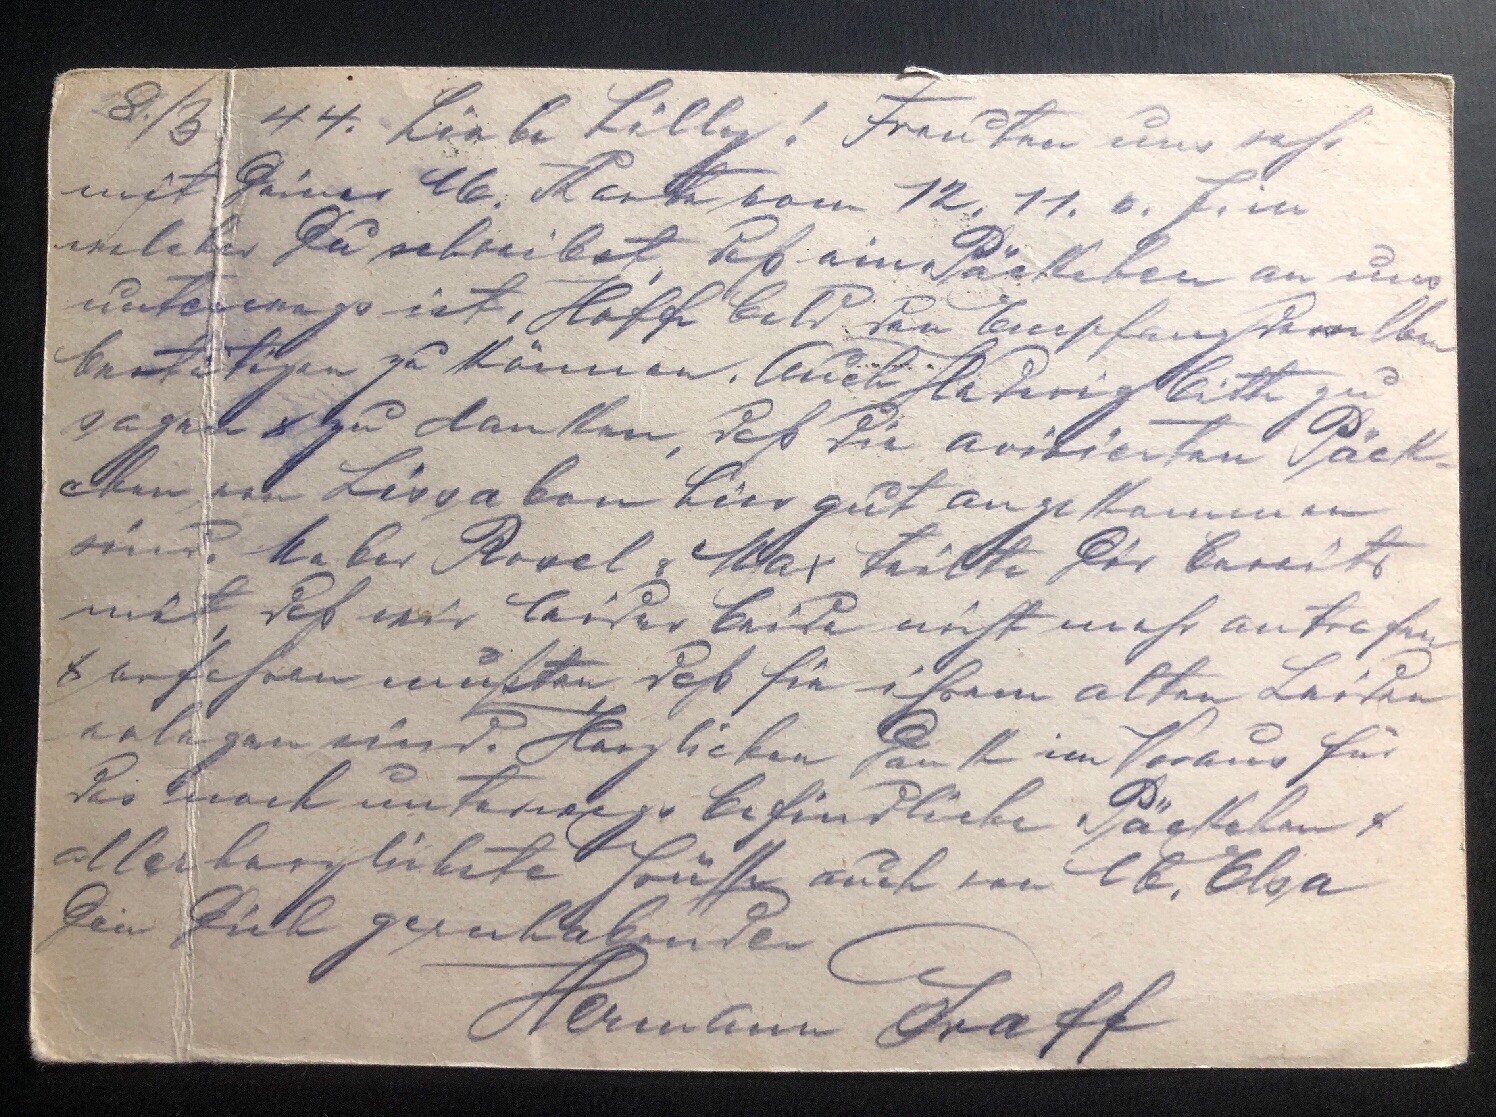 8./3. 44. Liebe Lilly! Freuten uns sehr
mit Deiner lb. Karte vom 12. 11. v. J. in
welcher Du schreibst, daß eine Päckchen an uns
unterwegs ist. Hoffe bald den Empfang desselben
bestätigen zu können. Auch Hedwig bitte zu
sagen & zu danken, daß die avisierten Päck-
chen von Lissabon hier gut angekommen
sind. Ueber Rosel & Max teilte Dir bereits
mit, daß wir leider beide nicht mehr antrafen
& erfahren mußten, daß sie ihrem alten Leiden
erlegen sind. Herzlichen Dank im Voraus für
das noch unterwegs befindliche Päckchen &
allerherzlichste Grüße auch von lb. Elsa
Dein Dich gernhabender
Hermann Graff